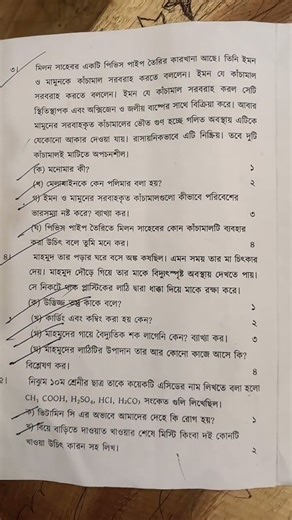 ৩। মিলন সাহেবের একটি পিভিস পাইপ তৈরির কারখানা আছে। তিনি ইমন
ও মামুনকে কাঁচামাল সরবরাহ করতে বললেন। ইমন যে কাঁচামাল
সরবরাহ করতে বললেন। ইমন যে কাঁচামাল সরবরাহ করল সেটি
স্থিতিস্থাপক এবং অক্সিজেন ও জলীয় বাষ্পের সাথে বিক্রিয়া করে। আবার
মামুনের সরবাহকৃত কাঁচামালের ভৌত গুণ হচ্ছে গলিত অবস্থায় এটিকে
যেকোনো আকার দেওয়া যায়। রাসায়নিকভাবে এটি নিষ্ক্রিয়। তবে দুটি
কাঁচামালই মাটিতে অপচনশীল।
(ক) মনোমার কী? ১
(খ) মেলামাইনকে কেন পলিমার বলা হয়? ২
(গ) ইমন ও মামুনের সরবাহকৃত কাঁচামালগুলো কীভাবে পরিবেশের
ভারসাম্য নষ্ট করে? ব্যাখ্যা কর। ৩
(ঘ) পিভিস পাইপ তৈরিতে মিলন সাহেবের কোন কাঁচামালটি ব্যবহার
করা উচিৎ বলে তুমি মনে কর। ৪
৪। মাহমুদ তার পড়ার ঘরে বসে অঙ্ক কষছিল। এমন সময় তার মা চিৎকার
দেয়। মাহমুদ দৌড়ে গিয়ে তার মাকে বিদ্যুৎস্পৃষ্ট অবস্থায় দেখতে পায়।
সে নিকটেই থাকা প্লাস্টিকের লাঠি দ্বারা ধাক্কা দিয়ে মাকে রক্ষা করে।
(ক) উদ্ভিজ্জ তন্তু কাকে বলে? ১
(খ) কার্ডিং এবং কম্বিং করা হয় কেন? ২
(গ) মাহমুদের গায়ে বৈদ্যুতিক শক লাগেনি কেন? ব্যাখ্যা কর। ৩
(ঘ) মাহমুদের লাঠিটির উপাদান তার আর কোনো কাজে আসে কি?
বিশ্লেষণ কর। ৪
নিঝুম ১০ম শ্রেনীর ছাত্র তাকে কয়েকটি এসিডের নাম লিখতে বলা হলো
CH₃ COOH, H₂SO₄, HCl, H₂CO₃ সংকেত গুলি লিখেছিল।
ক) ভিটামিন সি এর অভাবে আমাদের দেহে কি রোগ হয়? ১
খ) বিয়ে বাড়িতে দাওয়াত খাওয়ার শেষে মিস্টি কিংবা দই কোনটি
খাওয়া উচিৎ কারন সহ লিখ। ২